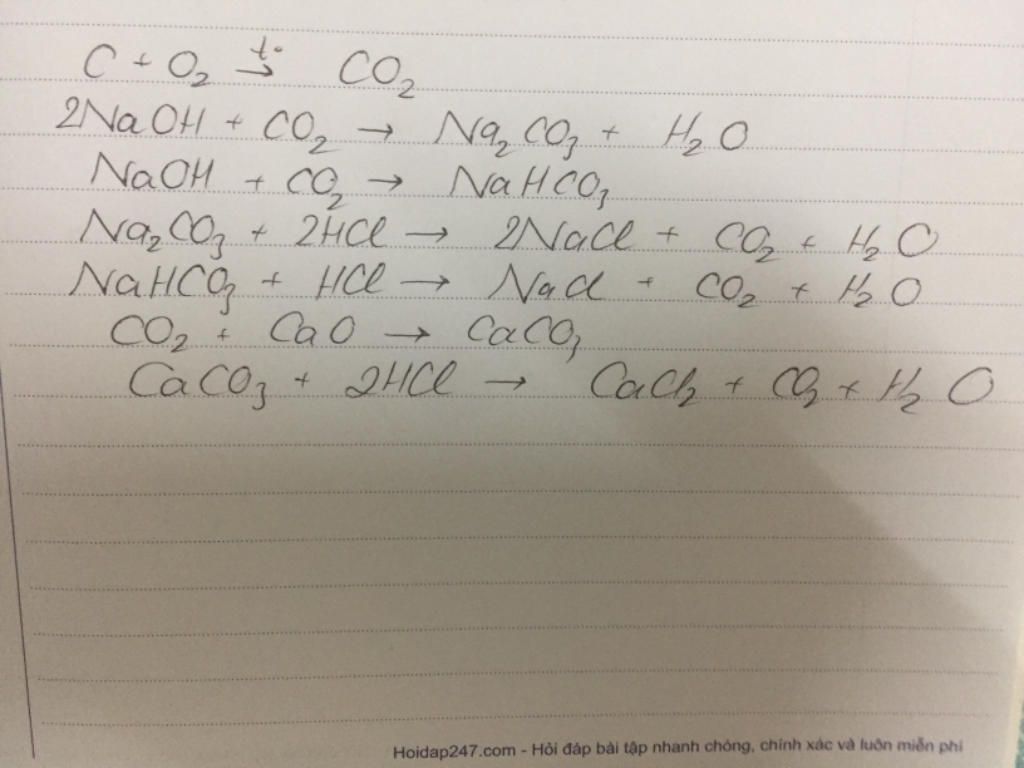 C + O₂ →(t°) CO₂
2NaOH + CO₂ → Na₂CO₃ + H₂O
NaOH + CO₂ → NaHCO₃
Na₂CO₃ + 2HCl → 2NaCl + CO₂ + H₂O
NaHCO₃ + HCl → NaCl + CO₂ + H₂O
CO₂ + CaO → CaCO₃
CaCO₃ + 2HCl → CaCl₂ + CO₂ + H₂O
Hoidap247.com - Hỏi đáp bài tập nhanh chóng, chính xác và luôn miễn phí